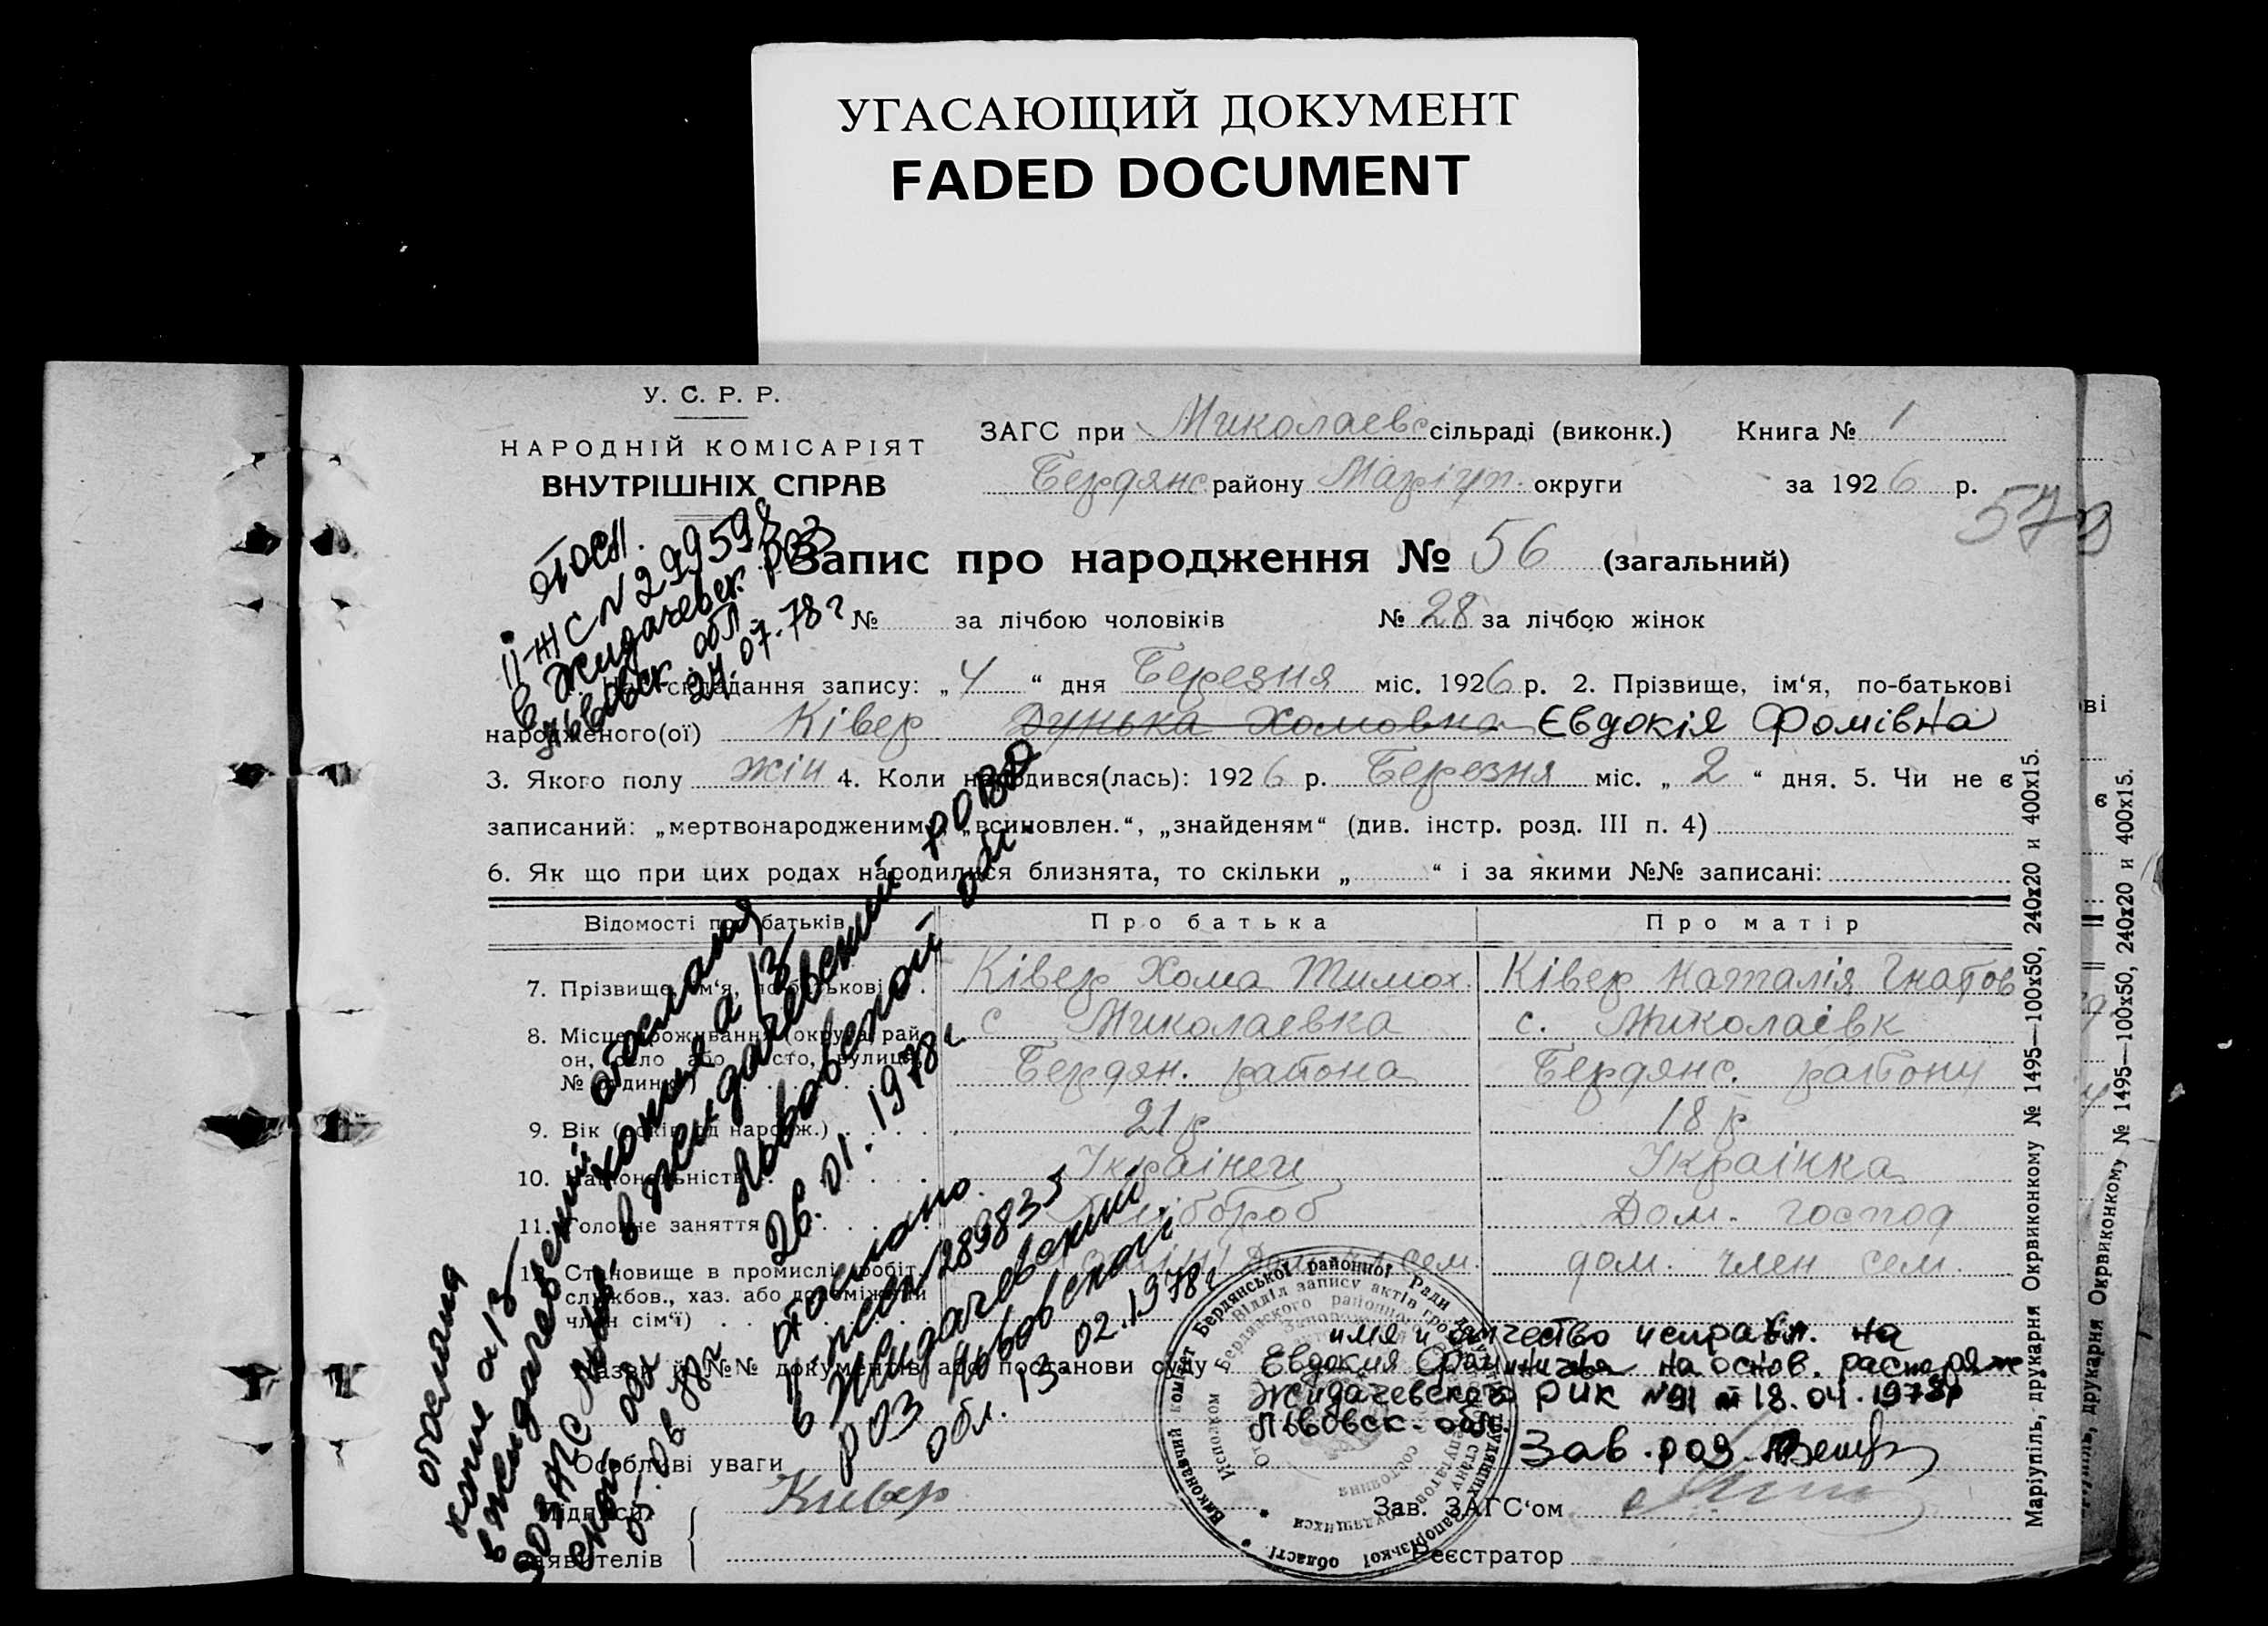 УГАСАЮЩИЙ ДОКУМЕНТ
FADED DOCUMENT
У. С. Р. Р.
НАРОДНІЙ КОМІСАРІЯТ
ВНУТРІШНІХ СПРАВ
ЗАГС при Миколаевс сільраді (виконк.) Книга № 1
Бердянс району Маріуп. округи за 1926 р.
578
Запис про народження № 56 (загальний)
№ за лічбою чоловіків № 28 за лічбою жінок
отосл.
II-ЖС № 299598
в Жидачевск. РОЗ
Львовск. обл.
24.07.78 г
складання запису: „4“ дня Березня міс. 1926 р. 2. Прізвище, ім‘я, по-батькові
народженого(ої) Ківер Дунька Хомовна Євдокія Фомівна
3. Якого полу жін 4. Коли народився(лась): 1926 р. Березня міс. „2“ дня. 5. Чи не є
записаний: „мертвонародженим“, „всиновлен.“, „знайденям“ (див. інстр. розд. III п. 4)
6. Як що при цих родах народилися близнята, то скільки „ “ і за якими №№ записані:
Відомості про батьків Про батька Про матір
7. Прізвище, ім‘я, по-батькові Ківер Хома Тимох. Ківер Наталія Гнатов
8. Місце проживання (округа, район, село або місто, вулиця, № будинку) с Миколаевка с. Миколаівк
Бердян. района Бердянс. району
9. Вік (років од народж.) 21 р 18 р
10. Національність Українец Українка
11. Головне заняття Хлібороб Дом. господ
12. Становище в промислі (робіт., службов., хаз. або допоміжний член сім‘ї) сем. дом. член сем.
Назви й №№ документів або постанови суду
имя и отчество исправл. на
Евдокия Фоминична на основ. распоряж
Жидачевского РИК №91 от 18.04.1978г
Львовск. обл.
Зав. роз.
Особливі уваги
Підписи заявителів Кивер
Зав. ЗАГС‘ом
Реєстратор
отослана
копия а/з
в Жидачевский РОЗАГС
Львовской обл.
26.01.1978 г
отослано
№ 289835
в Жидачевский
РОЗ Львовской
обл. 13.02.1978 г
отослана
копие а/з
в Жидачевский
РОЗАГС Львовской обл
05.06 88г
Виконавчий комітет Бердянської районної Ради депутатів трудящих Запорізької області
Відділ запису актів громадянського стану
Маріупіль, друкарня Окрвиконкому № 1495—100x50, 240x20 и 400x15.
друкарня Окрвиконкому № 1495—100x50, 240x20 и 400x15.